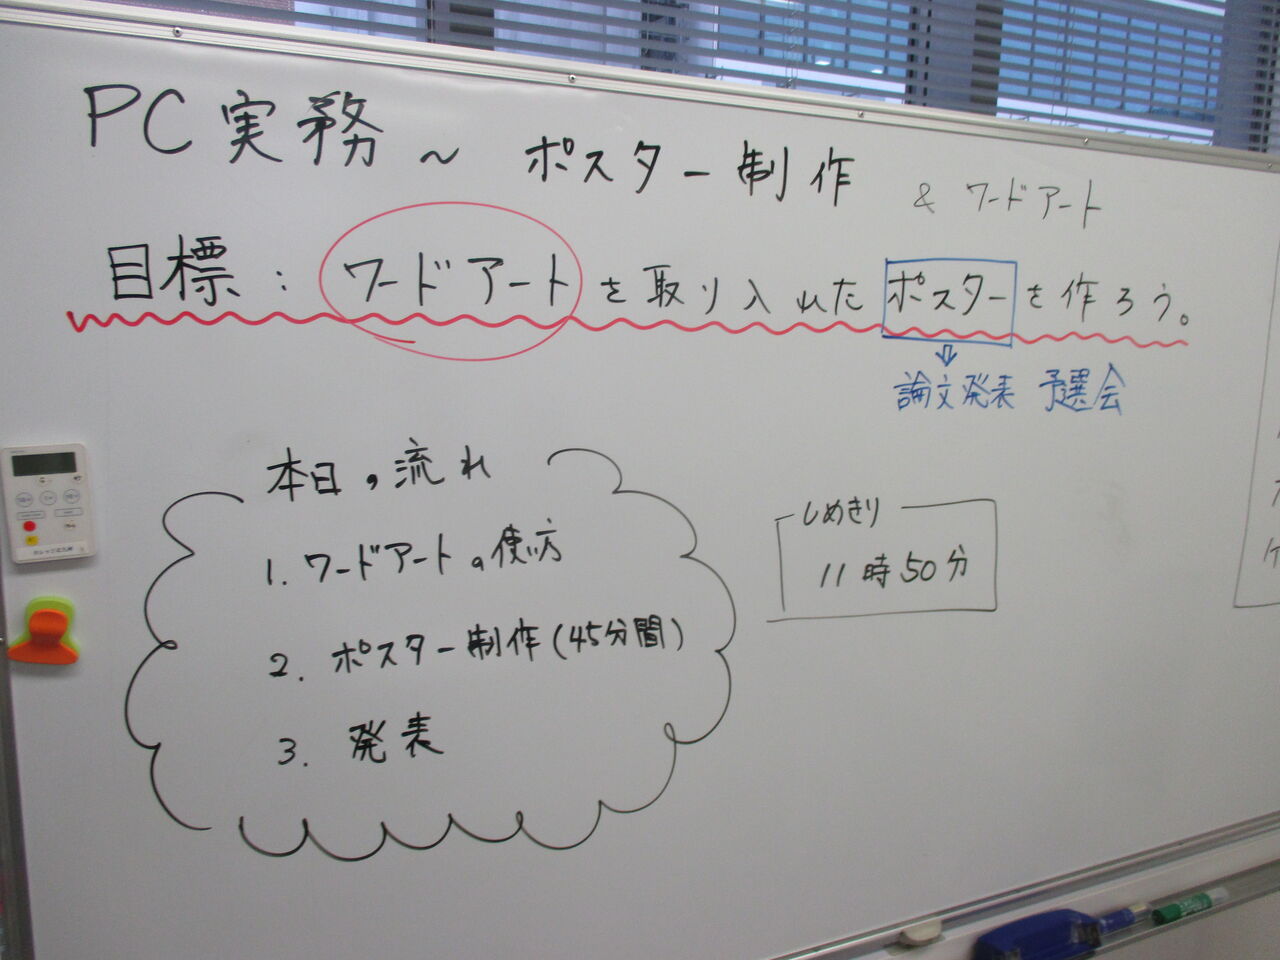 PC実務 ~ ポスター制作 & ワードアート
目標: ワードアートを取り入れたポスターを作ろう。
論文発表 予選会
本日の流れ
1. ワードアートの使い方
2. ポスター制作(45分間)
3. 発表
しめきり
11時50分